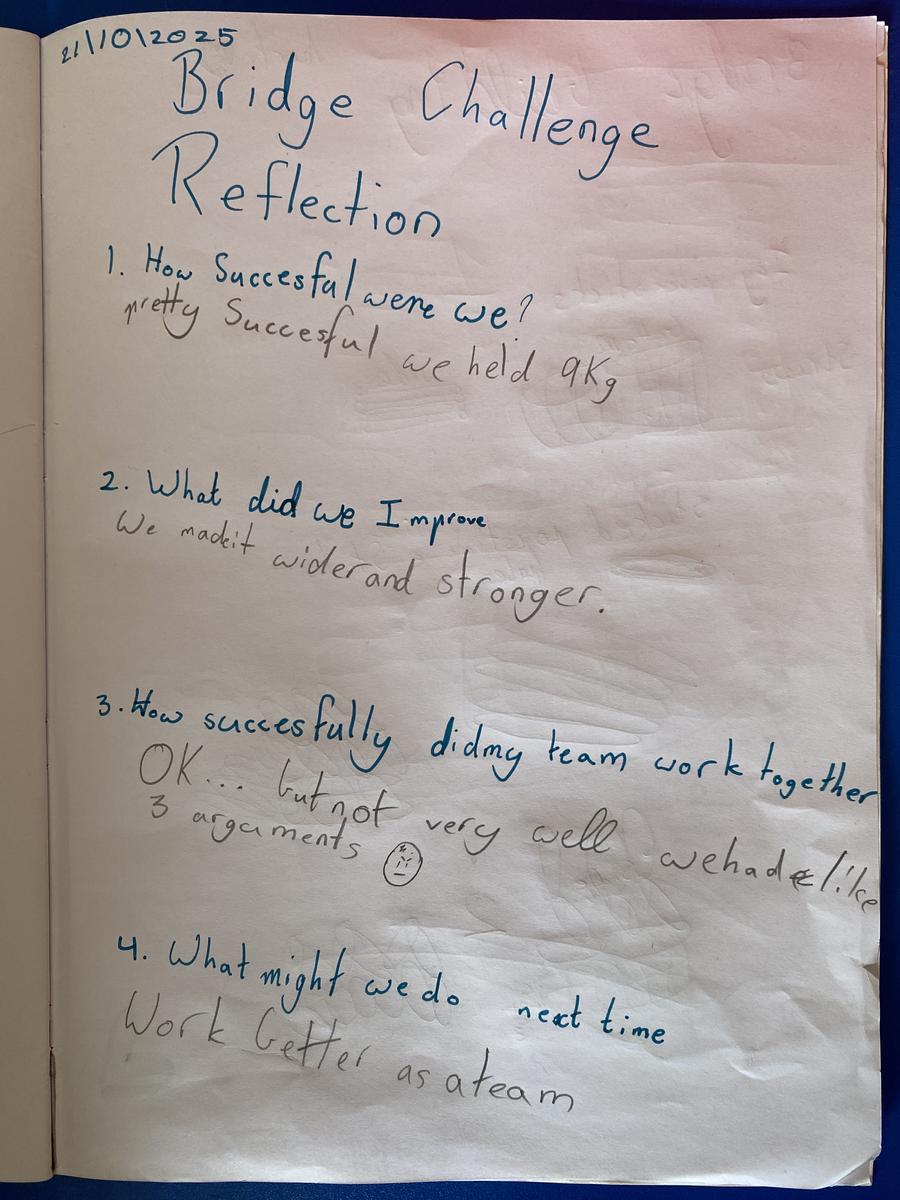 21\10\2025
Bridge Challenge
Reflection
1. How Succesful were we?
pretty Succesful we held 9Kg
2. What did we Improve
We made it wider and stronger.
3. How succesfully did my team work together
OK... but not very well we had like
3 arguments
4. What might we do next time
Work better as a team